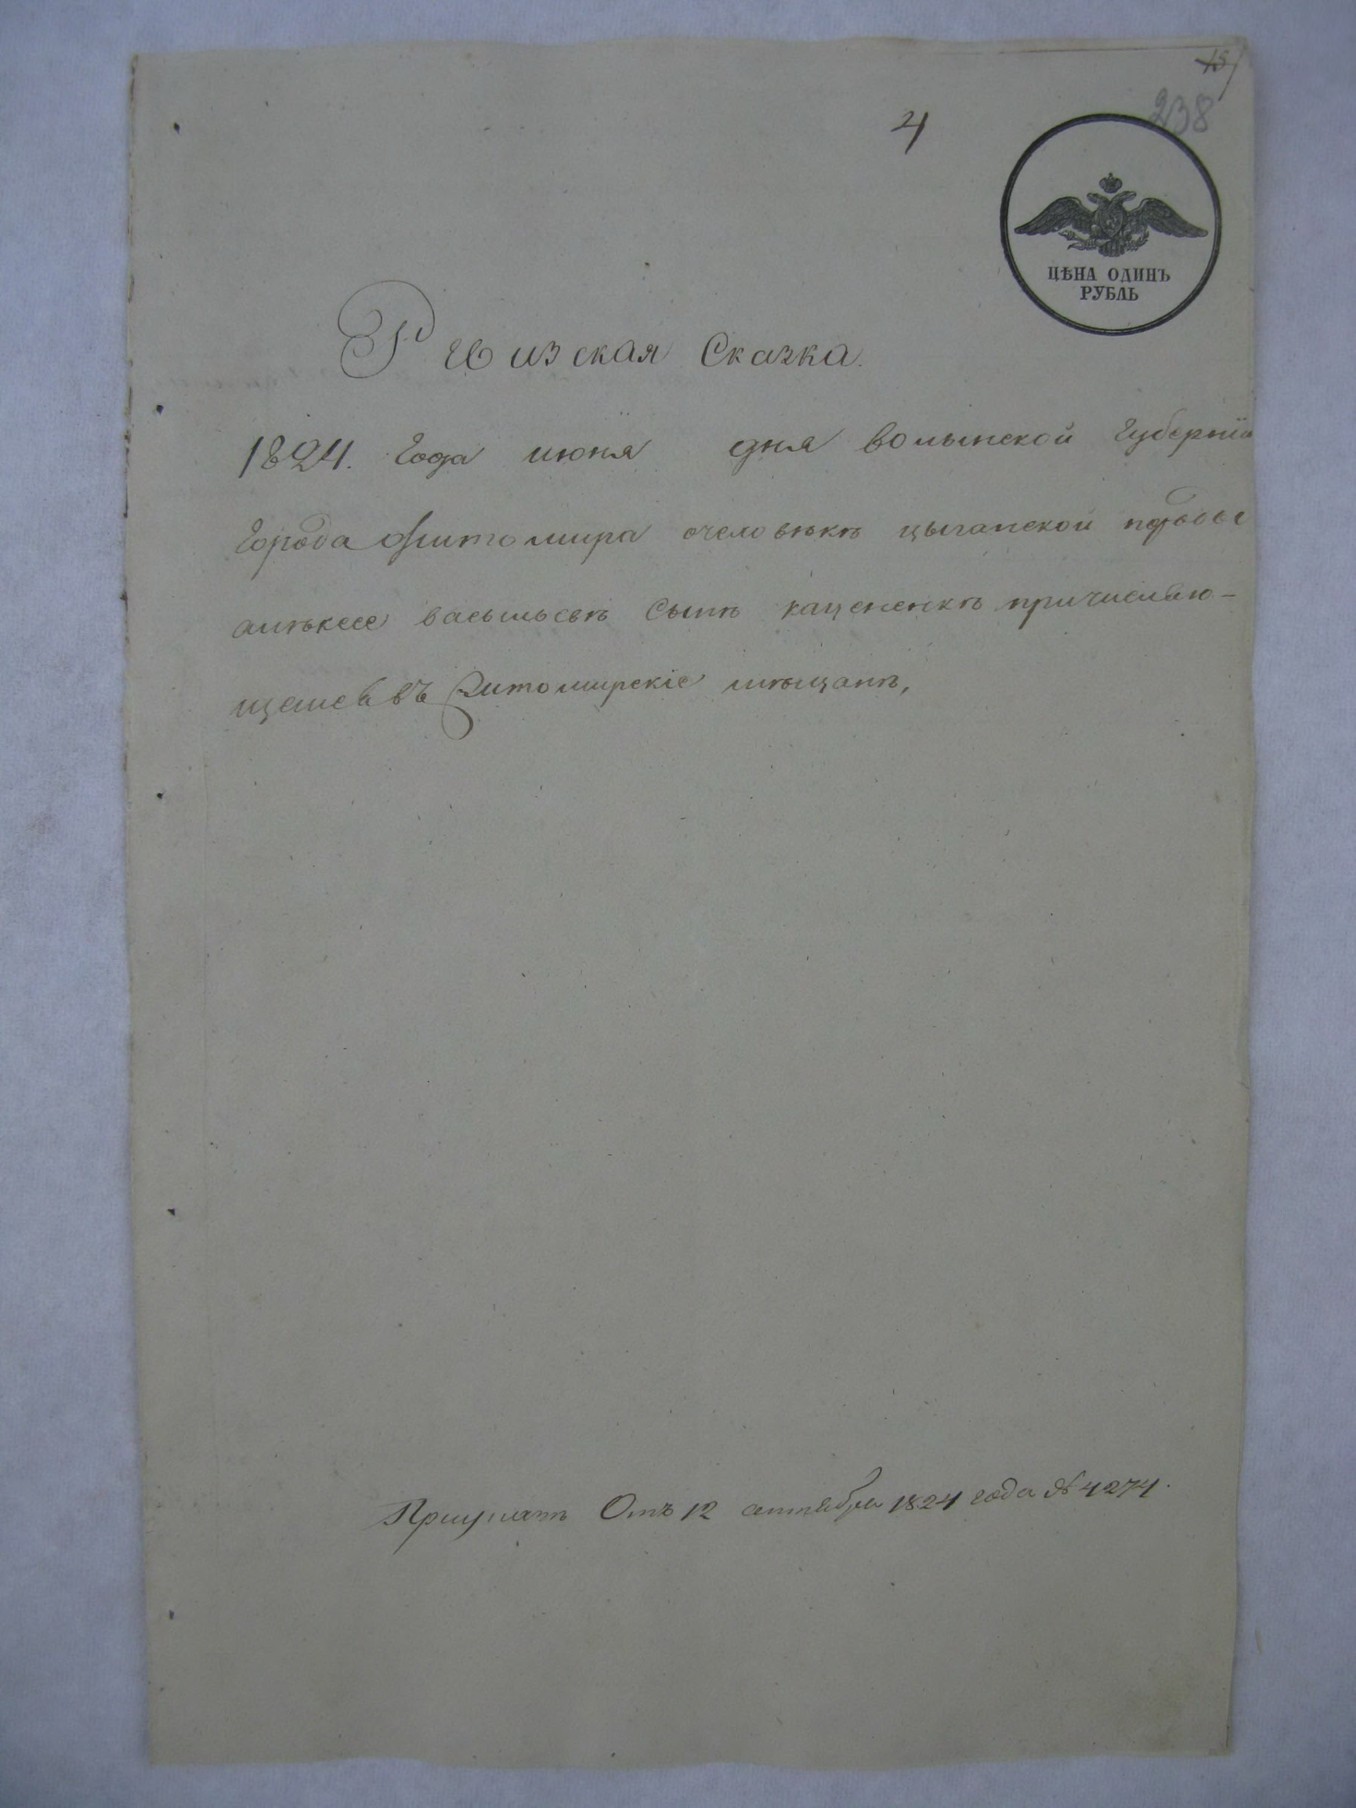 15
238
4
ЦѢНА ОДИНЪ
РУБЛЬ
Ревизская Сказка.
1824. Года июня дня волынской Губернїи
Города Житомира очеловѣкѣ цыганской породы
алѣксее васыльевѣ сынѣ каценекѣ причисляю-
щемся въ Житомирскіе мѣщанѣ,
Отъ 12 октября 1824 года № 4274.